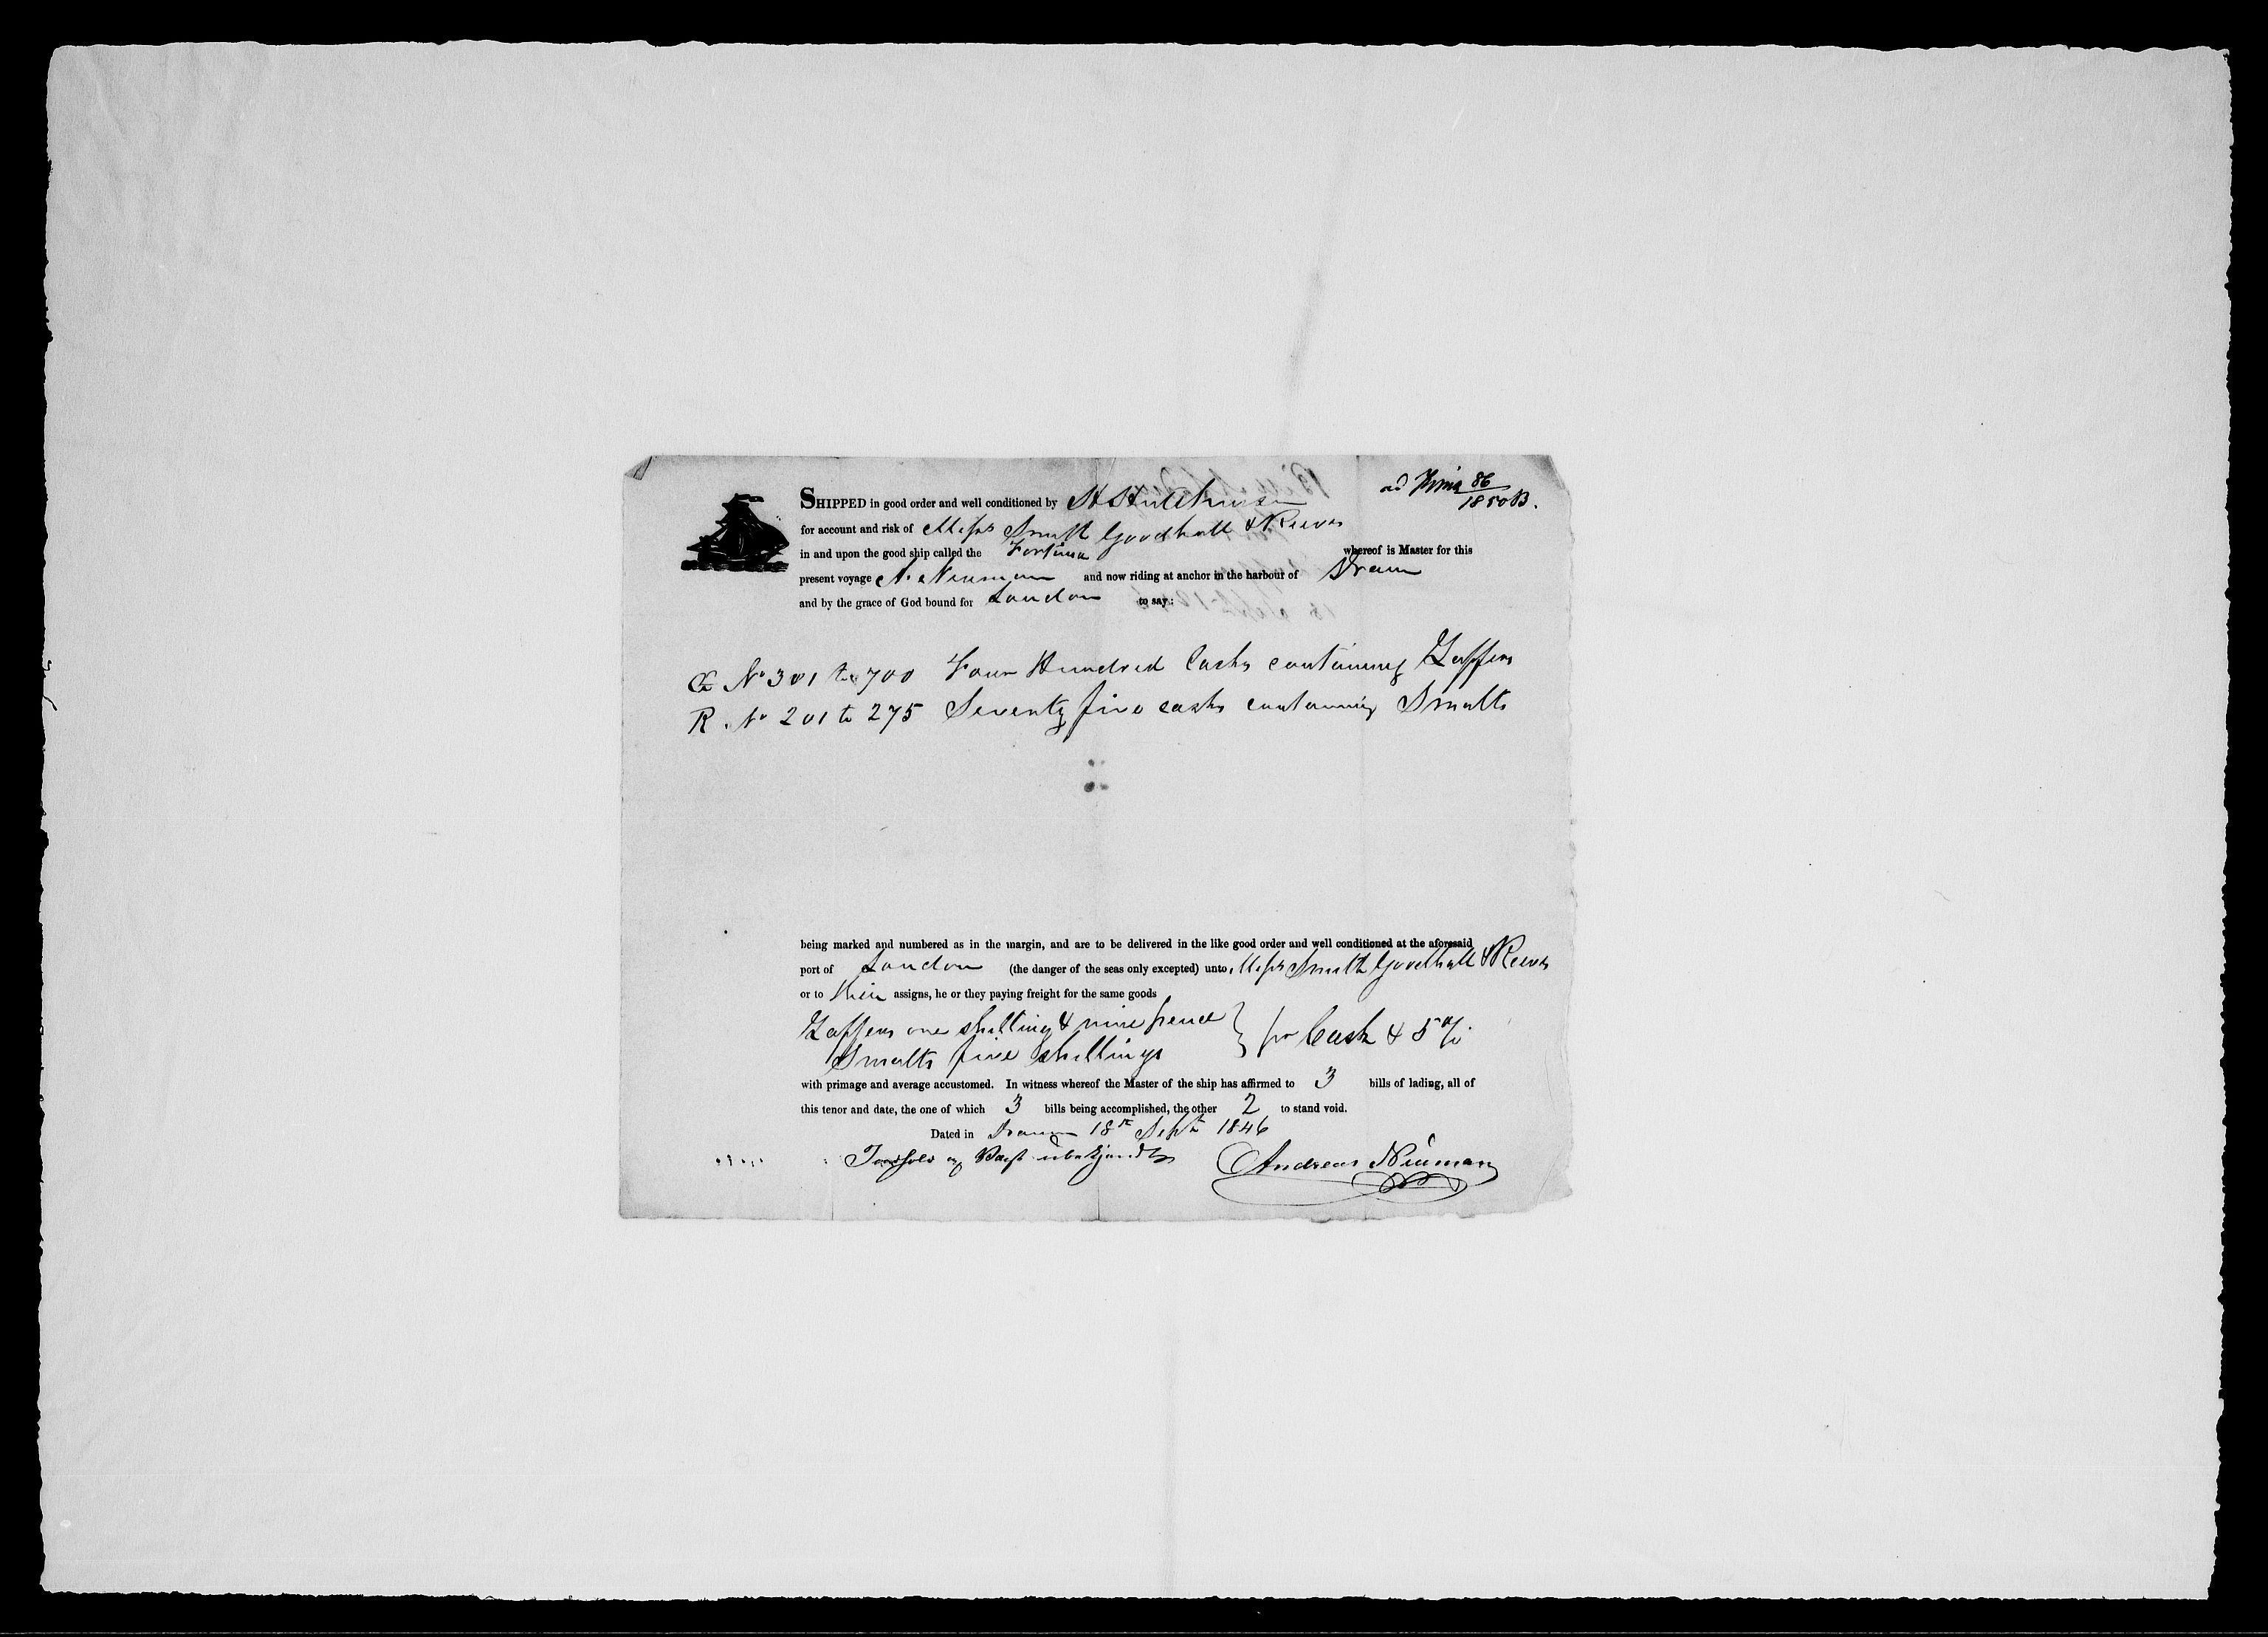 ad Kmia 86/1850 B.
SHIPPED in good order and well conditioned by H Hutchinson
for account and risk of Messrs Smith Goodhall & Reeves
in and upon the good ship called the Fortuna whereof is Master for this
present voyage A. Neuman and now riding at anchor in the harbour of Dram
and by the grace of God bound for London to say:
No 301 to 700 Four Hundred Casks containing Zaffers
R. No 201 to 275 Seventy five casks containing Smalts
being marked and numbered as in the margin, and are to be delivered in the like good order and well conditioned at the aforesaid
port of London (the danger of the seas only excepted) unto Messrs Smith Goodhall & Reeves
or to their assigns, he or they paying freight for the same goods
Zaffers one shilling & nine pence } pr Cask & 5 %
Smalts five shillings
with primage and average accustomed. In witness whereof the Master of the ship has affirmed to 3 bills of lading, all of
this tenor and date, the one of which 3 bills being accomplished, the other 2 to stand void.
Dated in Dram 18th Sept 1846
Indhold og Vægt ubekjendt
Andreas Neuman